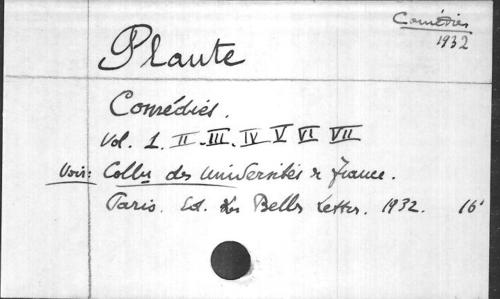 Comédies
1932
Plaute
Comédies.
Vol. 1. II. III. IV V VI VII
Voir: Colln des Universités de France.
Paris. Ed. Les Belles Lettres. 1932. 16°